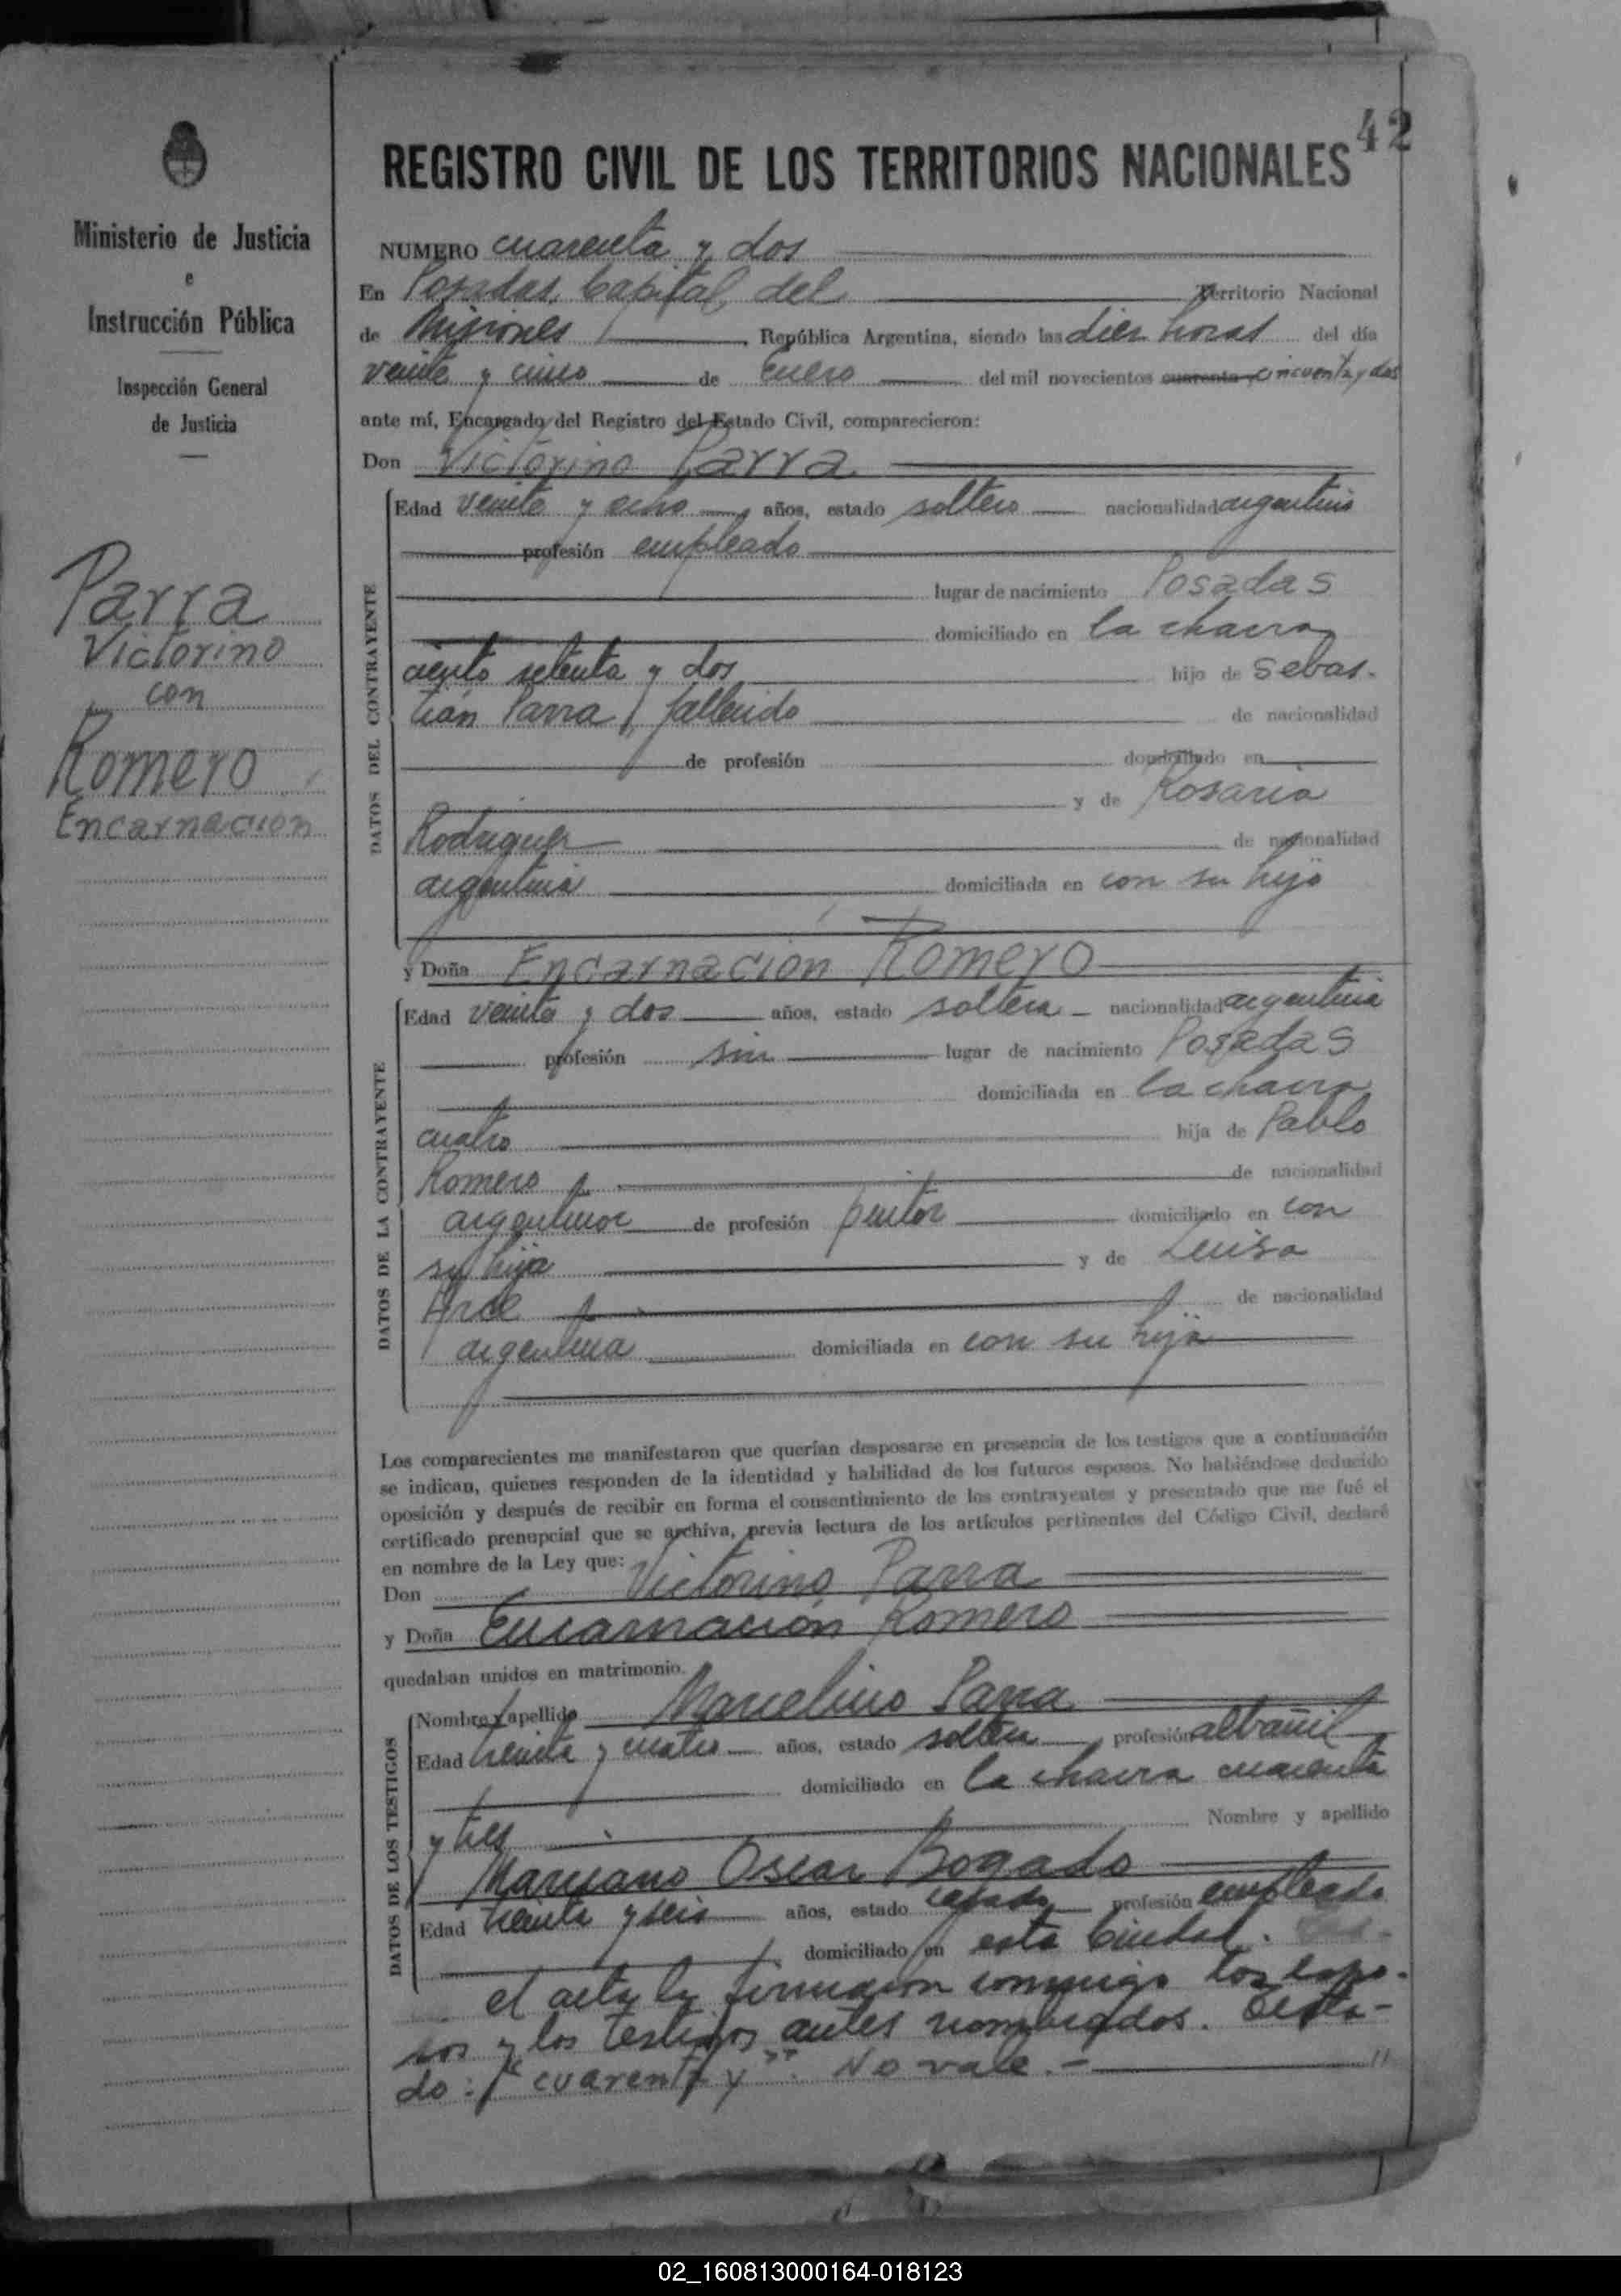 42
REGISTRO CIVIL DE LOS TERRITORIOS NACIONALES
Ministerio de Justicia
e
Instrucción Pública
Inspección General
de Justicia
Parra
Victorino
con
Romero
Encarnación
NUMERO cuarenta y dos
En Posadas, Capital del Territorio Nacional
de Misiones República Argentina, siendo las diez horas del día
veinte y cinco de Enero del mil novecientos cuarenta y cincuenta y dos
ante mí, Encargado del Registro del Estado Civil, comparecieron:
Don Victorino Parra
DATOS DEL CONTRAYENTE
Edad veinte y ocho años, estado soltero nacionalidad argentino
profesión empleado
lugar de nacimiento Posadas
domiciliado en la chacra
ciento setenta y dos hijo de Sebas-
tián Parra, fallecido de nacionalidad
de profesión domiciliado en
y de Rosario
Rodriguez de nacionalidad
argentina domiciliada en con su hijo
y Doña Encarnación Romero
DATOS DE LA CONTRAYENTE
Edad veinte y dos años, estado soltera nacionalidad argentina
profesión sin lugar de nacimiento Posadas
domiciliada en la chacra
cuatro hija de Pablo
Romero de nacionalidad
argentino de profesión pintor domiciliado en con
su hija y de Luisa
Arce de nacionalidad
argentina domiciliada en con su hija
Los comparecientes me manifestaron que querían desposarse en presencia de los testigos que a continuación
se indican, quienes responden de la identidad y habilidad de los futuros esposos. No habiéndose deducido
oposición y después de recibir en forma el consentimiento de los contrayentes y presentado que me fué el
certificado prenupcial que se archiva, previa lectura de los artículos pertinentes del Código Civil, declaré
en nombre de la Ley que:
Don Victorino Parra
y Doña Encarnación Romero
quedaban unidos en matrimonio.
DATOS DE LOS TESTIGOS
Nombre y apellido Marcelino Parra
Edad treinta y cuatro años, estado soltero profesión albañil
domiciliado en la chacra cuarenta
y tres Nombre y apellido
Mariano Oscar Bogado
Edad treinta y seis años, estado casado profesión empleado
domiciliado en esta Ciudad.
el acta la firmaron conmigo los espo-
sos y los testigos antes nombrados. Testa-
do: "cuarenta y". No vale.-
02_160813000164-018123